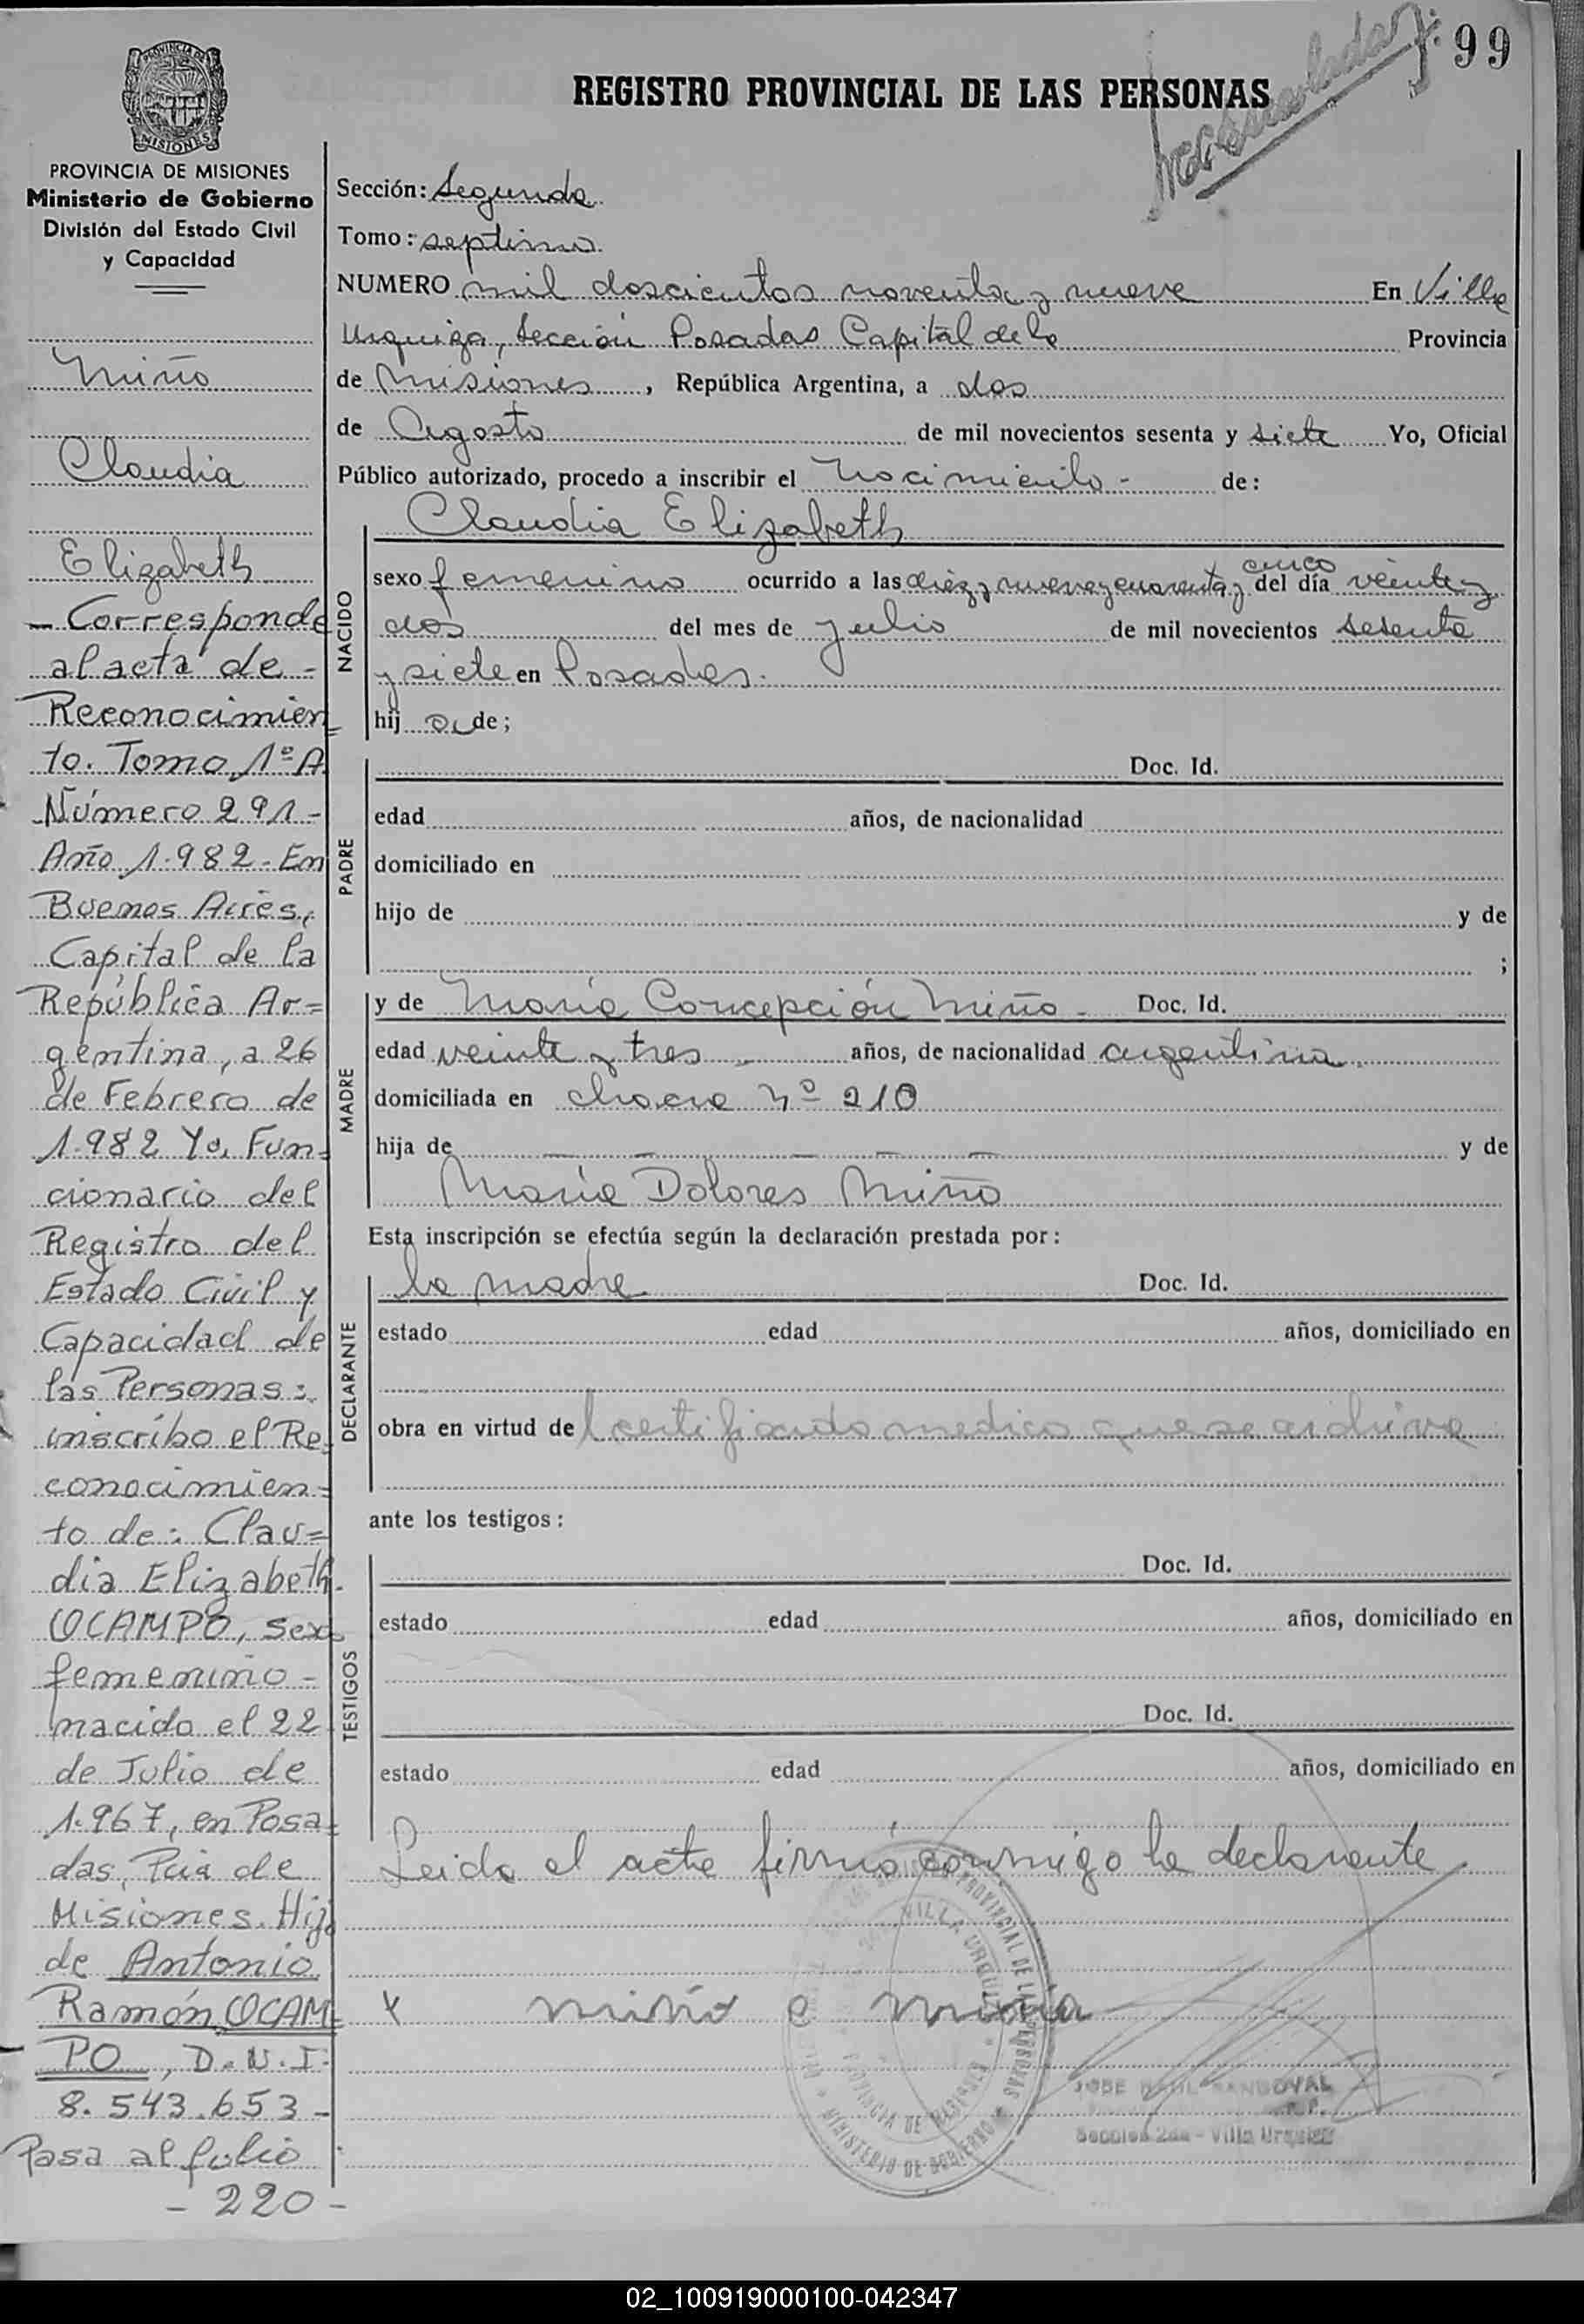 99
REGISTRO PROVINCIAL DE LAS PERSONAS
PROVINCIA DE MISIONES
MISIONES
PROVINCIA DE MISIONES
Ministerio de Gobierno
División del Estado Civil
y Capacidad
Miño
Claudia
Elizabeth
- Corresponde
al acta de -
Reconocimien=
to. Tomo 1º A
Número 291 -
Año 1.982 - En
Buenos Aires,
Capital de la
República Ar=
gentina, a 26
de Febrero de
1.982 Yo, Fun=
cionario del
Registro del
Estado Civil y
Capacidad de
las Personas:
inscribo el Re=
conocimien=
to de: Clau=
dia Elizabeth
OCAMPO, sexo
femenino -
nacido el 22
de Julio de
1.967, en Posa=
das, Pcia de
Misiones. Hijo
de Antonio
Ramón OCAM=
PO, D.N.I.
8.543.653 -
Pasa al folio
- 220 -
Sección: Segunda
Tomo: septimo
NUMERO mil doscientos noventa y nueve En Villa
Urquiza, Sección Posadas Capital de la Provincia
de Misiones, República Argentina, a dos
de Agosto de mil novecientos sesenta y siete Yo, Oficial
Público autorizado, procedo a inscribir el Nacimiento - de:
Claudia Elizabeth
NACIDO
cinco
sexo femenino ocurrido a las diez y nueve y cuarenta y del día veinte y
dos del mes de julio de mil novecientos sesenta
y siete en Posadas.
hij a de;
PADRE
Doc. Id.
edad años, de nacionalidad
domiciliado en
hijo de y de
;
MADRE
y de María Concepción Miño - Doc. Id.
edad veinte y tres - años, de nacionalidad argentina.
domiciliada en chacra Nº 210
hija de — — — — — y de
María Dolores Miño
Esta inscripción se efectúa según la declaración prestada por:
DECLARANTE
la madre Doc. Id.
estado edad años, domiciliado en
obra en virtud del certificado medico que se archiva
ante los testigos:
TESTIGOS
Doc. Id.
estado edad años, domiciliado en
Doc. Id.
estado edad años, domiciliado en
Leida el acta firmó conmigo la declarante
x miño c maria
REGISTRO PROVINCIAL DE LAS PERSONAS
VILLA URQUIZA
PROVINCIA DE MISIONES
MINISTERIO DE GOBIERNO
JOSE RAUL SANDOVAL
Sección 2da - Villa Urquiza
02_100919000100-042347